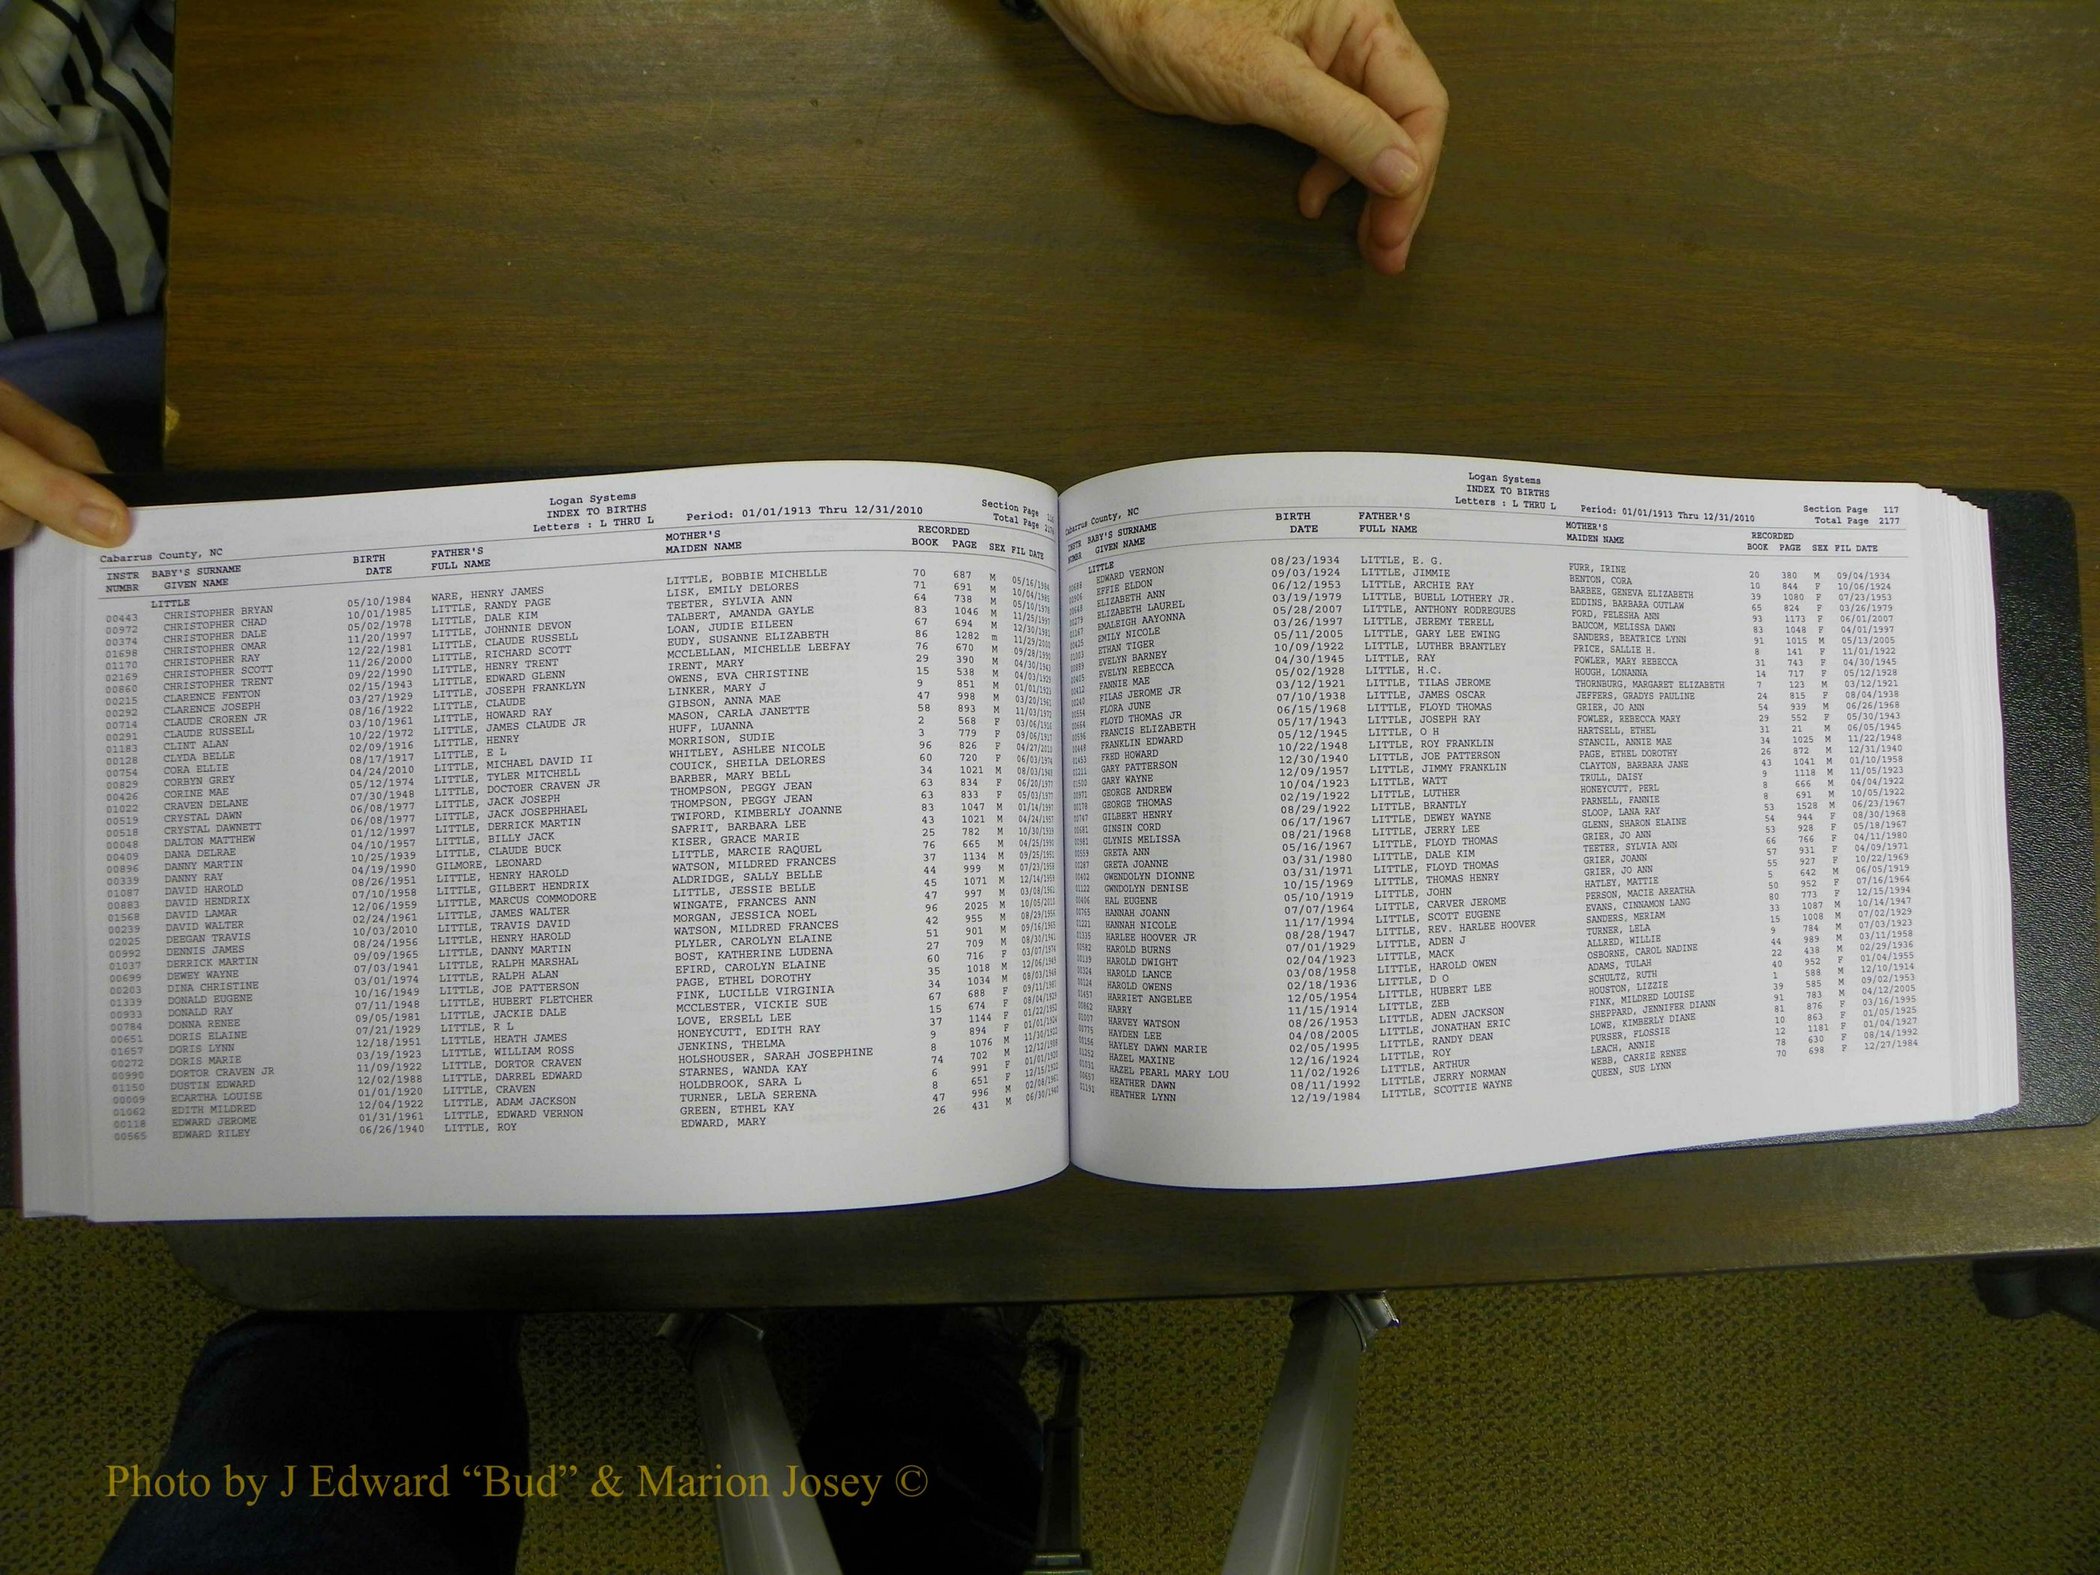 Logan Systems
INDEX TO BIRTHS
Cabarrus County, NC Letters : L THRU L Period: 01/01/1913 Thru 12/31/2010 Section Page 116
Total Page 2176
INSTR BABY'S SURNAME BIRTH FATHER'S MOTHER'S RECORDED
NUMBR GIVEN NAME DATE FULL NAME MAIDEN NAME BOOK PAGE SEX FIL DATE
LITTLE
00443 CHRISTOPHER BRYAN 05/10/1984 WARE, HENRY JAMES LITTLE, BOBBIE MICHELLE 70 687 M 05/16/1984
00972 CHRISTOPHER CHAD 10/01/1985 LITTLE, RANDY PAGE LISK, EMILY DELORES 71 691 M 10/04/1985
00374 CHRISTOPHER DALE 05/02/1978 LITTLE, DALE KIM TEETER, SYLVIA ANN 64 738 M 05/10/1978
01698 CHRISTOPHER OMAR 11/20/1997 LITTLE, JOHNNIE DEVON TALBERT, AMANDA GAYLE 83 1046 M 11/25/1997
01170 CHRISTOPHER RAY 12/22/1981 LITTLE, CLAUDE RUSSELL LOAN, JUDIE EILEEN 67 694 M 12/30/1981
02169 CHRISTOPHER SCOTT 11/26/2000 LITTLE, RICHARD SCOTT EUDY, SUSANNE ELIZABETH 86 1282 m 11/29/2000
00860 CHRISTOPHER TRENT 09/22/1990 LITTLE, HENRY TRENT MCCLELLAN, MICHELLE LEEFAY 76 670 M 09/28/1990
00215 CLARENCE FENTON 02/15/1943 LITTLE, EDWARD GLENN IRENT, MARY 29 390 M 04/30/1943
00292 CLARENCE JOSEPH 03/27/1929 LITTLE, JOSEPH FRANKLYN OWENS, EVA CHRISTINE 15 538 M 04/03/1929
00714 CLAUDE CROREN JR 08/16/1922 LITTLE, CLAUDE LINKER, MARY J 9 851 M 01/01/1923
00291 CLAUDE RUSSELL 03/10/1961 LITTLE, HOWARD RAY GIBSON, ANNA MAE 47 998 M 03/20/1961
01183 CLINT ALAN 10/22/1972 LITTLE, JAMES CLAUDE JR MASON, CARLA JANETTE 58 893 M 11/03/1972
00128 CLYDA BELLE 02/09/1916 LITTLE, HENRY HUFF, LUANNA 2 568 F 03/06/1916
00754 CORA ELLIE 08/17/1917 LITTLE, E L MORRISON, SUDIE 3 779 F 09/06/1917
00829 CORBYN GREY 04/24/2010 LITTLE, MICHAEL DAVID II WHITLEY, ASHLEE NICOLE 96 826 F 04/27/2010
00426 CORINE MAE 05/12/1974 LITTLE, TYLER MITCHELL COUICK, SHEILA DELORES 60 720 F 06/03/1974
01022 CRAVEN DELANE 07/30/1948 LITTLE, DOCTOER CRAVEN JR BARBER, MARY BELL 34 1021 M 08/03/1948
00519 CRYSTAL DAWN 06/08/1977 LITTLE, JACK JOSEPH THOMPSON, PEGGY JEAN 63 834 F 06/20/1977
00518 CRYSTAL DAWNETT 06/08/1977 LITTLE, JACK JOSEPHHAEL THOMPSON, PEGGY JEAN 63 833 F 05/03/1977
00048 DALTON MATTHEW 01/12/1997 LITTLE, DERRICK MARTIN TWIFORD, KIMBERLY JOANNE 83 1047 M 01/14/1997
00409 DANA DELRAE 04/10/1957 LITTLE, BILLY JACK SAFRIT, BARBARA LEE 43 1021 M 04/24/1957
00896 DANNY MARTIN 10/25/1939 LITTLE, CLAUDE BUCK KISER, GRACE MARIE 25 782 M 10/30/1939
00339 DANNY RAY 04/19/1990 GILMORE, LEONARD LITTLE, MARCIE RAQUEL 76 665 M 04/25/1990
01087 DAVID HAROLD 08/26/1951 LITTLE, HENRY HAROLD WATSON, MILDRED FRANCES 37 1134 M 09/25/1951
00883 DAVID HENDRIX 07/10/1958 LITTLE, GILBERT HENDRIX ALDRIDGE, SALLY BELLE 44 999 M 07/23/1958
01568 DAVID LAMAR 12/06/1959 LITTLE, MARCUS COMMODORE LITTLE, JESSIE BELLE 45 1071 M 12/14/1959
00239 DAVID WALTER 02/24/1961 LITTLE, JAMES WALTER WINGATE, FRANCES ANN 47 997 M 03/08/1961
02025 DEEGAN TRAVIS 10/03/2010 LITTLE, TRAVIS DAVID MORGAN, JESSICA NOEL 96 2025 M 10/05/2010
00992 DENNIS JAMES 08/24/1956 LITTLE, HENRY HAROLD WATSON, MILDRED FRANCES 42 955 M 08/29/1956
01037 DERRICK MARTIN 09/09/1965 LITTLE, DANNY MARTIN PLYLER, CAROLYN ELAINE 51 901 M 09/16/1965
00699 DEWEY WAYNE 07/03/1941 LITTLE, RALPH MARSHAL BOST, KATHERINE LUDENA 27 709 M 08/30/1941
00203 DINA CHRISTINE 03/01/1974 LITTLE, RALPH ALAN EFIRD, CAROLYN ELAINE 60 716 F 03/07/1974
01339 DONALD EUGENE 10/16/1949 LITTLE, JOE PATTERSON PAGE, ETHEL DOROTHY 35 1018 M 12/06/1949
00933 DONALD RAY 07/11/1948 LITTLE, HUBERT FLETCHER FINK, LUCILLE VIRGINIA 34 1034 M 08/03/1948
00784 DONNA RENEE 09/05/1981 LITTLE, JACKIE DALE MCCLESTER, VICKIE SUE 67 688 F 09/11/1981
00651 DORIS ELAINE 07/21/1929 LITTLE, R L LOVE, ERSELL LEE 15 674 F 08/04/1929
01657 DORIS LYNN 12/18/1951 LITTLE, HEATH JAMES HONEYCUTT, EDITH RAY 37 1144 F 01/22/1952
00272 DORIS MARIE 03/19/1923 LITTLE, WILLIAM ROSS JENKINS, THELMA 9 894 F 01/01/1924
00990 DORTOR CRAVEN JR 11/09/1922 LITTLE, DORTOR CRAVEN HOLSHOUSER, SARAH JOSEPHINE 8 1076 M 11/30/1922
01150 DUSTIN EDWARD 12/02/1988 LITTLE, DARREL EDWARD STARNES, WANDA KAY 74 702 M 12/12/1988
00009 ECARTHA LOUISE 01/01/1920 LITTLE, CRAVEN HOLDBROOK, SARA L 6 991 F 01/01/1920
01062 EDITH MILDRED 12/04/1922 LITTLE, ADAM JACKSON TURNER, LELA SERENA 8 651 F 12/15/1922
00118 EDWARD JEROME 01/31/1961 LITTLE, EDWARD VERNON GREEN, ETHEL KAY 47 996 M 02/08/1961
00565 EDWARD RILEY 06/26/1940 LITTLE, ROY EDWARD, MARY 26 431 M 06/30/1940
Logan Systems
INDEX TO BIRTHS
Cabarrus County, NC Letters : L THRU L Period: 01/01/1913 Thru 12/31/2010 Section Page 117
Total Page 2177
INSTR BABY'S SURNAME BIRTH FATHER'S MOTHER'S RECORDED
NUMBR GIVEN NAME DATE FULL NAME MAIDEN NAME BOOK PAGE SEX FIL DATE
LITTLE
00688 EDWARD VERNON 08/23/1934 LITTLE, E. G. FURR, IRINE 20 380 M 09/04/1934
00906 EFFIE ELDON 09/03/1924 LITTLE, JIMMIE BENTON, CORA 10 844 F 10/06/1924
00648 ELIZABETH ANN 06/12/1953 LITTLE, ARCHIE RAY BARBEE, GENEVA ELIZABETH 39 1080 F 07/23/1953
00279 ELIZABETH LAUREL 03/19/1979 LITTLE, BUELL LOTHERY JR. EDDINS, BARBARA OUTLAW 65 824 F 03/26/1979
01167 EMALEIGH AAYONNA 05/28/2007 LITTLE, ANTHONY RODREGUES FORD, FELESHA ANN 93 1173 F 06/01/2007
00425 EMILY NICOLE 03/26/1997 LITTLE, JEREMY TERELL BAUCOM, MELISSA DAWN 83 1048 F 04/01/1997
01003 ETHAN TIGER 05/11/2005 LITTLE, GARY LEE EWING SANDERS, BEATRICE LYNN 91 1015 M 05/13/2005
00889 EVELYN BARNEY 10/09/1922 LITTLE, LUTHER BRANTLEY PRICE, SALLIE H. 8 141 F 11/01/1922
00405 EVELYN REBECCA 04/30/1945 LITTLE, RAY FOWLER, MARY REBECCA 31 743 F 04/30/1945
00412 FANNIE MAE 05/02/1928 LITTLE, H.C. HOUGH, LONANNA 14 717 F 05/12/1928
00240 FILAS JEROME JR 03/12/1921 LITTLE, TILAS JEROME THORNBURG, MARGARET ELIZABETH 7 123 M 03/12/1921
00554 FLORA JUNE 07/10/1938 LITTLE, JAMES OSCAR JEFFERS, GRADYS PAULINE 24 815 F 08/04/1938
00664 FLOYD THOMAS JR 06/15/1968 LITTLE, FLOYD THOMAS GRIER, JO ANN 54 939 M 06/26/1968
00596 FRANCIS ELIZABETH 05/17/1943 LITTLE, JOSEPH RAY FOWLER, REBECCA MARY 29 552 F 05/30/1943
00448 FRANKLIN EDWARD 05/12/1945 LITTLE, O H HARTSELL, ETHEL 31 21 M 06/05/1945
01453 FRED HOWARD 10/22/1948 LITTLE, ROY FRANKLIN STANCIL, ANNIE MAE 34 1025 M 11/22/1948
01211 GARY PATTERSON 12/30/1940 LITTLE, JOE PATTERSON PAGE, ETHEL DOROTHY 26 872 M 12/31/1940
01500 GARY WAYNE 12/09/1957 LITTLE, JIMMY FRANKLIN CLAYTON, BARBARA JANE 43 1041 M 01/10/1958
00971 GEORGE ANDREW 10/04/1923 LITTLE, WATT TRULL, DAISY 9 1118 M 11/05/1923
00178 GEORGE THOMAS 02/19/1922 LITTLE, LUTHER HONEYCUTT, PERL 8 666 M 04/04/1922
00747 GILBERT HENRY 08/29/1922 LITTLE, BRANTLY PARNELL, FANNIE 8 691 M 10/05/1922
00681 GINSIN CORD 06/17/1967 LITTLE, DEWEY WAYNE SLOOP, LANA RAY 53 1528 M 06/23/1967
00981 GLYNIS MELISSA 08/21/1968 LITTLE, JERRY LEE GLENN, SHARON ELAINE 54 944 F 08/30/1968
00559 GRETA ANN 05/16/1967 LITTLE, FLOYD THOMAS GRIER, JO ANN 53 928 F 05/18/1967
00287 GRETA JOANNE 03/31/1980 LITTLE, DALE KIM TEETER, SYLVIA ANN 66 766 F 04/11/1980
00402 GWENDOLYN DIONNE 03/31/1971 LITTLE, FLOYD THOMAS GRIER, JOANN 57 931 F 04/09/1971
01122 GWNDOLYN DENISE 10/15/1969 LITTLE, THOMAS HENRY GRIER, JO ANN 55 927 F 10/22/1969
00406 HAL EUGENE 05/10/1919 LITTLE, JOHN HATLEY, MATTIE 5 642 M 06/05/1919
00765 HANNAH JOANN 07/07/1964 LITTLE, CARVER JEROME PERSON, MACIE AREATHA 50 952 F 07/16/1964
01221 HANNAH NICOLE 11/17/1994 LITTLE, SCOTT EUGENE EVANS, CINNAMON LANG 80 773 F 12/15/1994
01335 HARLEE HOOVER JR 08/28/1947 LITTLE, REV. HARLEE HOOVER SANDERS, MERIAM 33 1087 M 10/14/1947
00582 HAROLD BURNS 07/01/1929 LITTLE, ADEN J TURNER, LELA 15 1008 M 07/02/1929
00139 HAROLD DWIGHT 02/04/1923 LITTLE, MACK ALLRED, WILLIE 9 784 M 07/03/1923
00324 HAROLD LANCE 03/08/1958 LITTLE, HAROLD OWEN OSBORNE, CAROL NADINE 44 989 M 03/11/1958
00124 HAROLD OWENS 02/18/1936 LITTLE, D O ADAMS, TULAH 22 438 M 02/29/1936
01457 HARRIET ANGELEE 12/05/1954 LITTLE, HUBERT LEE SCHULTZ, RUTH 40 952 F 01/04/1955
00862 HARRY 11/15/1914 LITTLE, ZEB HOUSTON, LIZZIE 1 588 M 12/10/1914
01007 HARVEY WATSON 08/26/1953 LITTLE, ADEN JACKSON FINK, MILDRED LOUISE 39 585 M 09/02/1953
00775 HAYDEN LEE 04/08/2005 LITTLE, JONATHAN ERIC SHEPPARD, JENNIFER DIANN 91 783 M 04/12/2005
00156 HAYLEY DAWN MARIE 02/05/1995 LITTLE, RANDY DEAN LOWE, KIMBERLY DIANE 81 876 F 03/16/1995
01252 HAZEL MAXINE 12/16/1924 LITTLE, ROY PURSER, FLOSSIE 10 863 F 01/05/1925
01031 HAZEL PEARL MARY LOU 11/02/1926 LITTLE, ARTHUR LEACH, ANNIE 12 1181 F 01/04/1927
00657 HEATHER DAWN 08/11/1992 LITTLE, JERRY NORMAN WEBB, CARRIE RENEE 78 630 F 08/14/1992
01191 HEATHER LYNN 12/19/1984 LITTLE, SCOTTIE WAYNE QUEEN, SUE LYNN 70 698 F 12/27/1984
Photo by J Edward “Bud” & Marion Josey ©